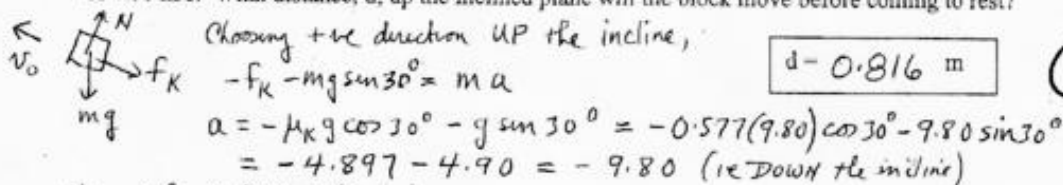 What distance, d, up the inclined plane will the block move before coming to rest?
N
v₀
f_K
mg
Choosing +ve direction UP the incline,
-f_K - mg sin 30° = m a
d = 0.816 m
a = -μ_K g cos 30° - g sin 30° = -0.577(9.80) cos 30° - 9.80 sin 30°
= -4.897 - 4.90 = -9.80 (ie DOWN the incline)